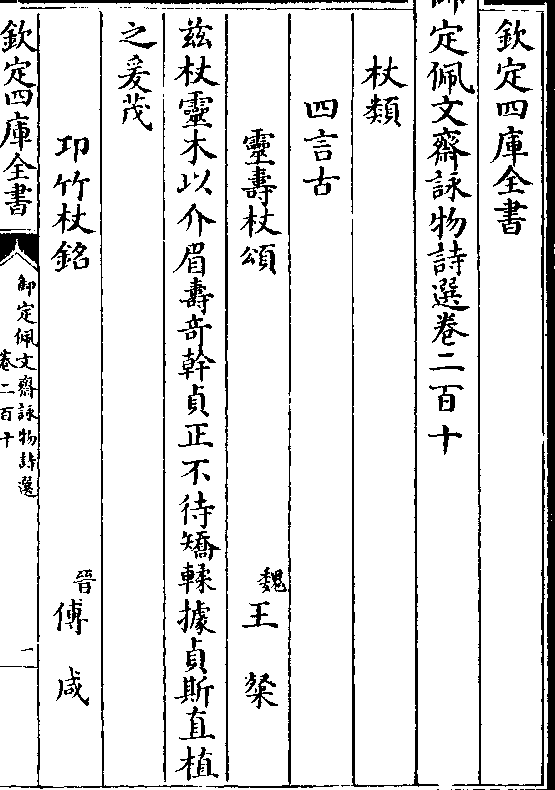 欽定四庫全書
御定佩文齋詠物詩選卷二百十
杖類
四言古
靈壽杖頌　魏王粲
茲杖靈木以介眉壽竒幹貞正不待矯輮據貞斯直植
之爰茂
邛竹杖銘　晉傅咸
欽定四庫全書
御定佩文齋詠物詩選
卷二百十
一